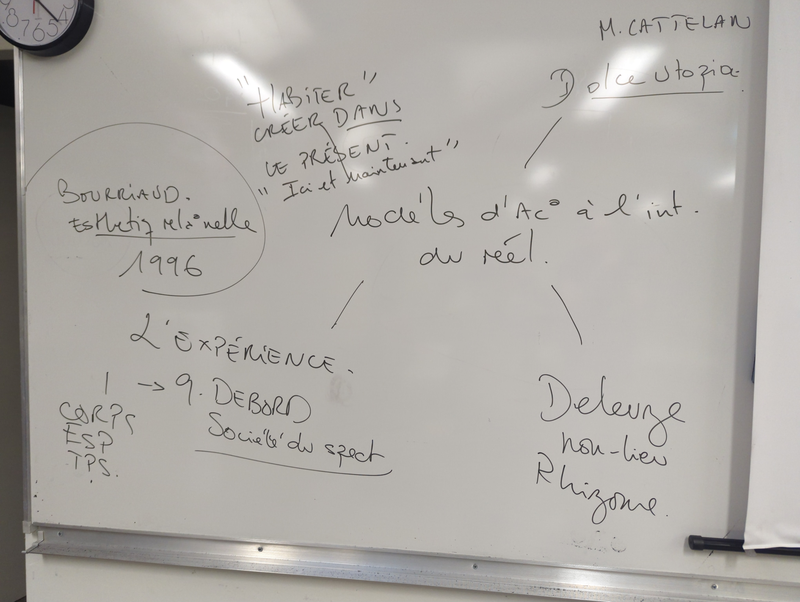 8 7 6 5 4
M. CATTELAN
Dolce utopia
"HABITER"
CRÉER DANS
LE PRÉSENT.
"Ici et maintenant"
BOURRIAUD.
Esthetiq rela°nelle
1996
Modèles d'Ac° à l'int.
du réel.
L'EXPÉRIENCE.
CORPS
ESP
TPS.
→ G. DEBORD
Société du spect
Deleuze
non-lieu
Rhizome.